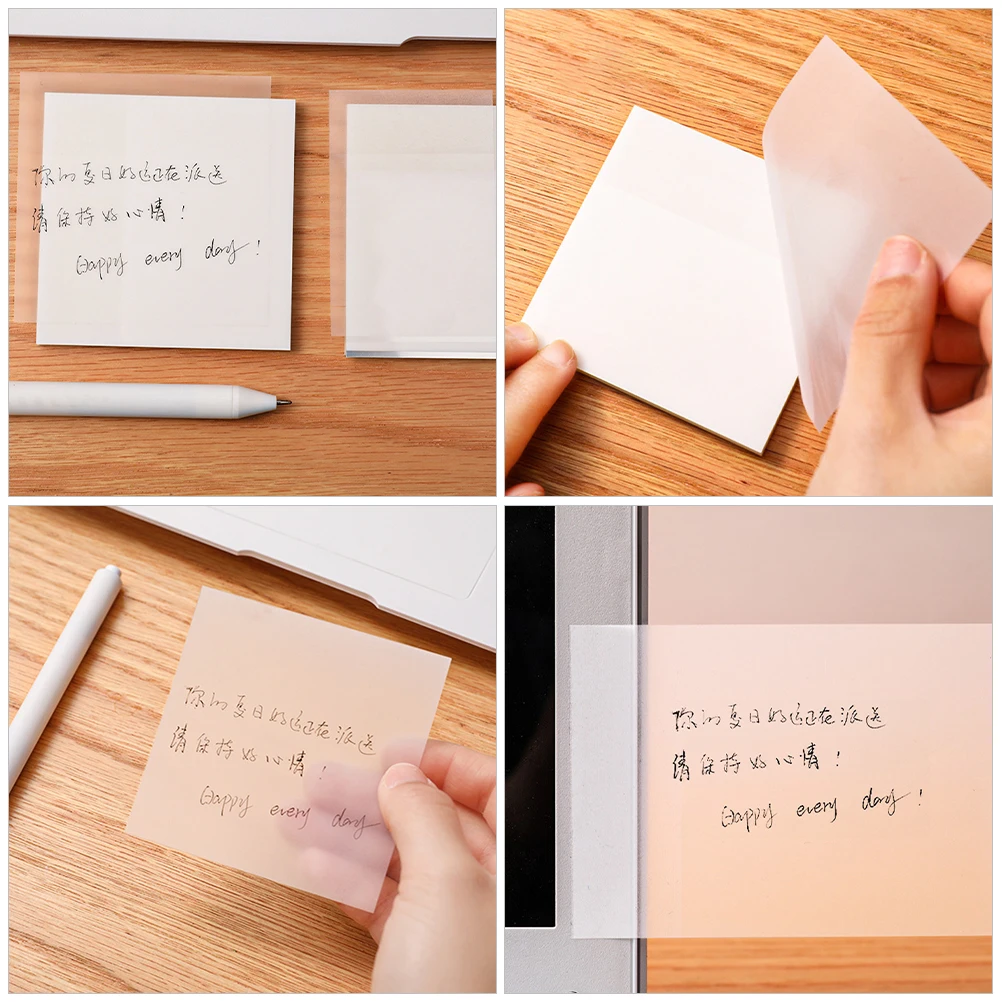 你的夏日好运正在派送
请保持好心情！
Happy every day！
你的夏日好运正在派送
请保持好心情！
Happy every day
你的夏日好运正在派送
请保持好心情！
Happy every day！